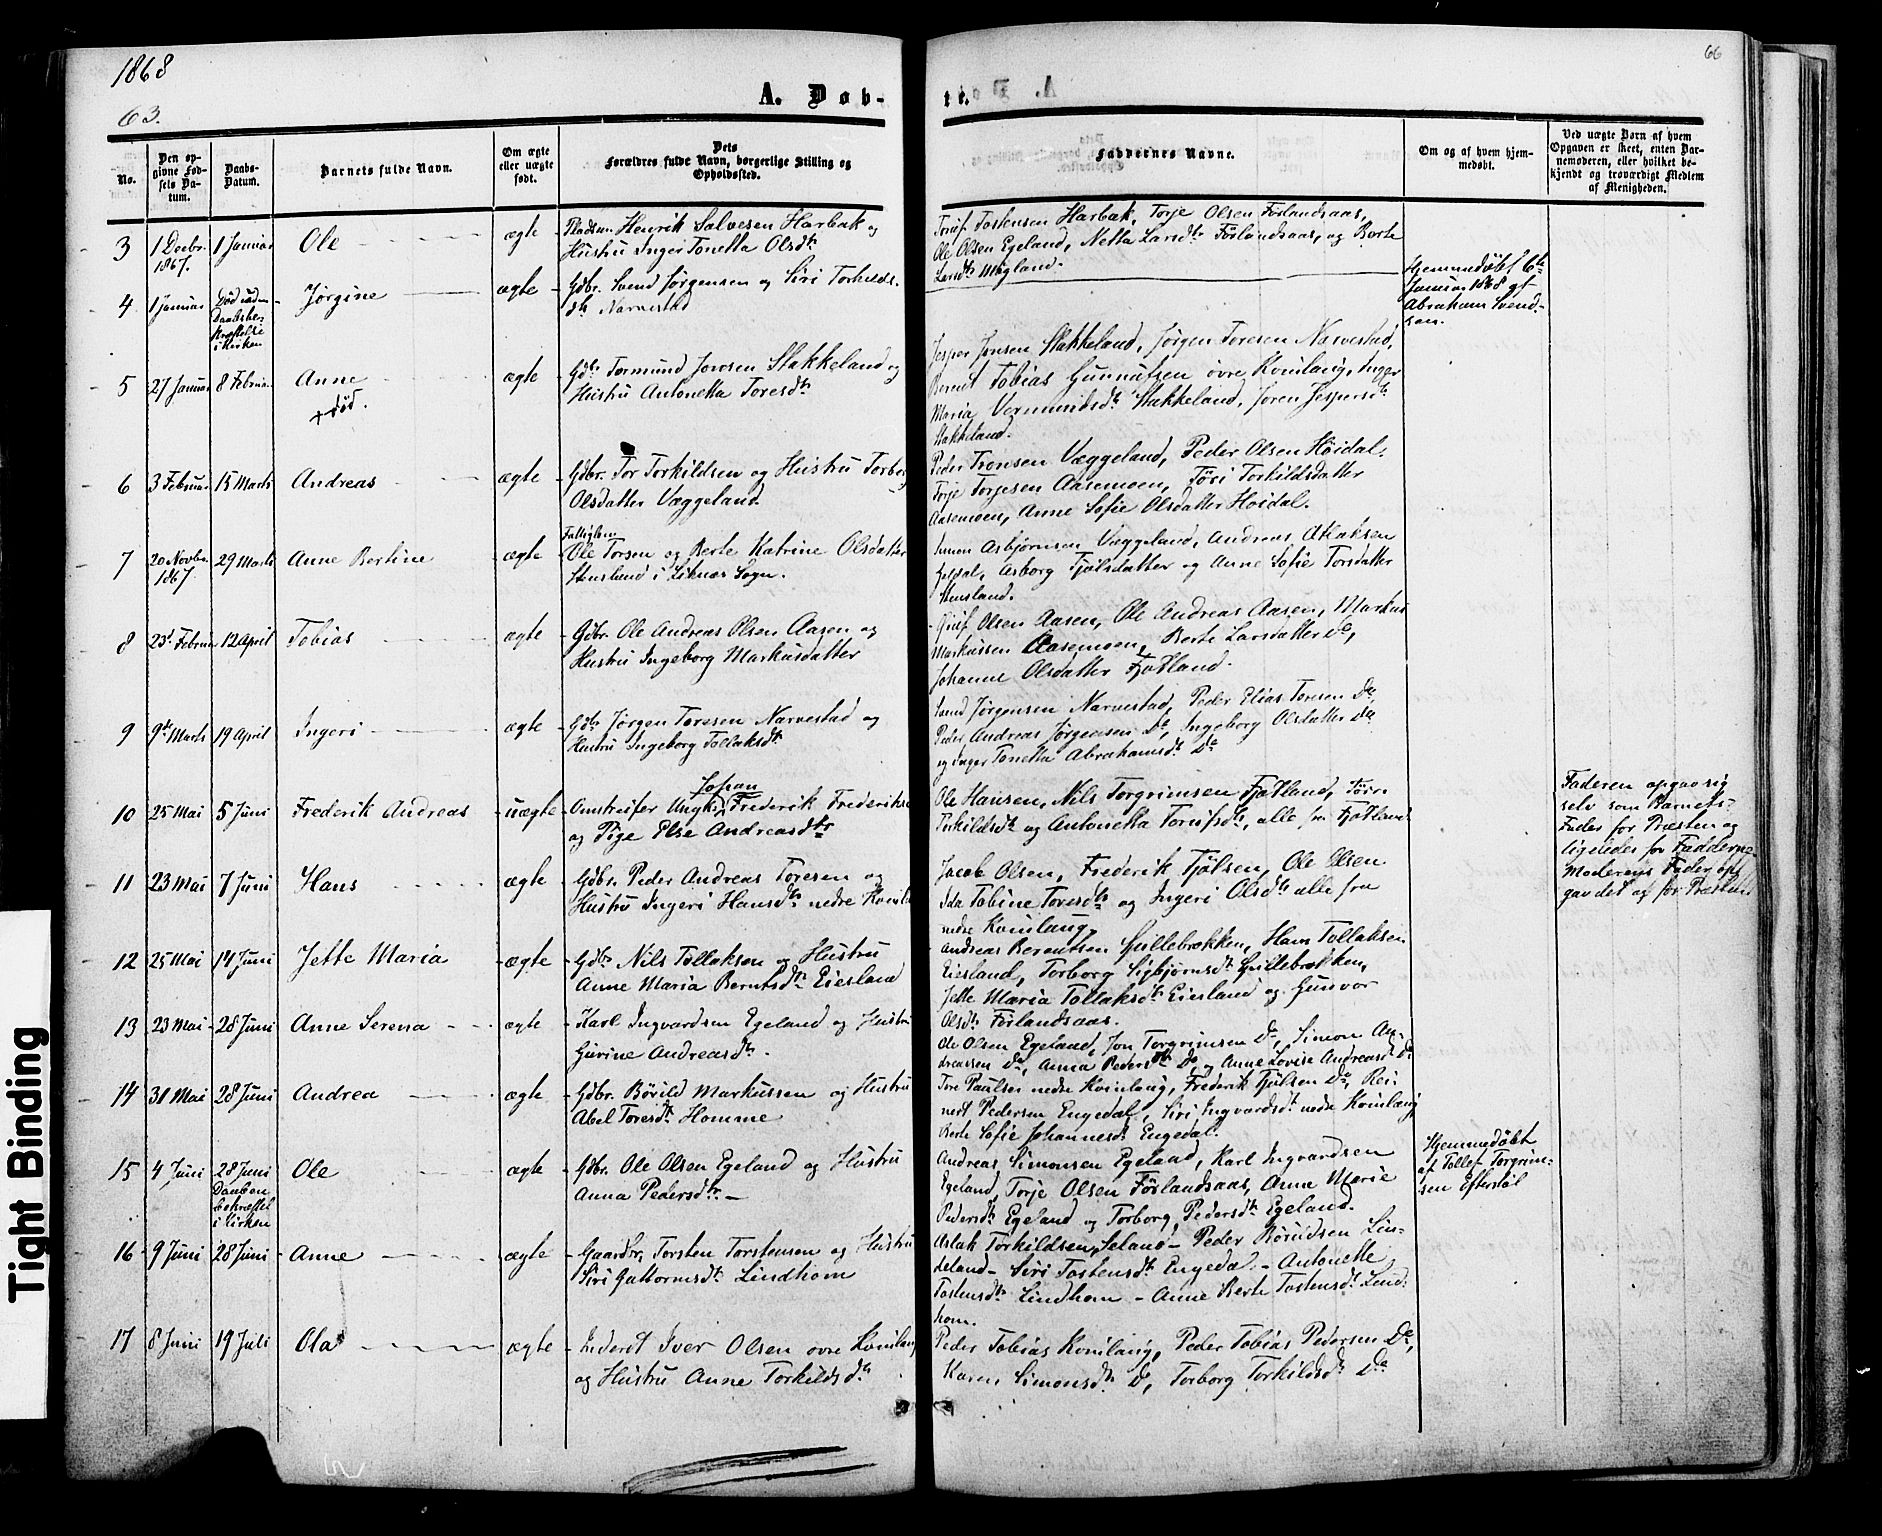 1868
63.
A. Døb-
No.
Den opgivne Fødsels Datum.
Daabs-Datum.
Barnets fulde Navn.
Om ægte eller uægte født.
Dets Forældres fulde Navn, borgerlige Stilling og Opholdssted.
3 1 Decbr. 1867. 1 Januar Ole ægte Pladsm. Henrik Salvesen Harbak og
Hustru Inger Tonetta Olsdtr
4 1 Januar Død uden Daabsbekræftelse i Kirken Jørgine ægte Gdbr. Svend Jørgensen og Siri Torkilds-
dtr Narvestad
5 27 Januar 8 Februar Anne + død. ægte Gdbr Tormund Jonsen Stakkeland og
Hustru Antonetta Toresdtr
6 3 Februar 15 Marts Andreas ægte Gdbr. Tor Torkildsen og Hustru Torborg
Olsdatter Væggeland.
7 20 Novbr. 1867. 29 Marts Anne Bertine ægte Fattiglem
Ole Torsen og Berte Katrine Olsdatter
Stensland i Liknes Sogn.
8 23 Februar 12 April Tobias ægte Gdbr. Ole Andreas Olsen Aasen og
Hustru Ingeborg Markusdatter
9 9de Marts 19 April Ingeri ægte Gdbr Jørgen Toresen Narvestad og
Hustru Ingeborg Tollaksdtr
10 25 Mai 5 Juni Frederik Andreas uægte Omstreifer Ungk. Johan Frederik Frederiks
og Pige Else Andreasdtr
11 23 Mai 7 Juni Hans ægte Gdbr. Peder Andreas Toresen og
Hustru Ingeri Hansdtr nedre Kvinl
12 25 Mai 14 Juni Jette Maria ægte Gdbr Nils Tollaksen og Hustru
Anne Maria Berntsdtr Eiesland
13 23 Mai 28 Juni Anne Serena ægte Karl Ingvardsen Egeland og Hustru
Gurine Andreasdtr.
14 31 Mai 28 Juni Andrea ægte Gdbr. Børild Markussen og Hustru
Abel Toresdtr Homme
15 4 Juni 28 Juni Daaben bekræftet i Kirken Ole ægte Gdbr. Ole Olsen Egeland og Hustru
Anna Pedersdtr.
16 9 Juni 28 Juni Anne ægte Gaardbr. Torsten Torstensen og Hustru
Siri Guttormsdtr Lindhom
17 8 Juni 19 Juli Ola ægte Inderst Iver Olsen øvre Kvinlaug
og Hustru Anne Torkildsdtr.
66
te.
Faddernes Navne.
Om og af hvem hjemmedøbt.
Ved uægte Børn af hvem Opgaven er skeet, enten Barnemoderen, eller hvilket bekjendt og troværdigt Medlem af Menigheden.
Torif Tostensen Harbak, Torje Olsen Førlandsaas,
Ole Olsen Egeland, Netta Larsdtr Førlandsaas, og Berte
Larsdtr Mygland.
Hjemmedøbt 6te
Januar 1868 af
Abraham Svend-
sen.
Jesper Jonsen Stakkeland, Jørgen Toresen Narvestad,
Berent Tobias Gunnufsen øvre Kvinlaug, Inger
Maria Vermundsdtr Stakkeland, Joren Jespersdtr
Stakkeland.
Peder Tronsen Væggeland, Peder Olsen Høidal.
Torje Torjesen Aasemoen, Tøri Torkildsdatter
Aasemoen, Anne Sofie Olsdatter Høidal.
Simon Asbjørnsen Væggeland, Andreas Atlaksen
Asborg Fjølsdatter og Anne Sofie Torsdatter
Stensland.
Olsen Aasen, Ole Andreas Aasen, Markus
Markussen Aasemoen, Berte Larsdatter Do,
Johanne Olsdatter Fjotland.
Svend Jørgensen Narvestad, Peder Elias Toresen Do
Peder Andreas Jørgensen Do, Ingeborg Olsdatter Do
og Inger Tonetta Abrahamsdtr Do
Ole Hansen, Nils Torgrimsen Fjotland, Tørri
Torkildsdtr og Antonetta Torufsdtr, alle fra Fjotland
Faderen opgav sig
selv som Barnets
Fader for Præsten og
ligeledes for Fadderne
Moderens Fader op-
gav det af for Præsten
Jacob Olsen, Frederik Fjølsen, Ole Olsen
Ida Tobine Toresdtr og Ingeri Olsdtr alle fra
nedre Kvinlaug.
Andreas Berentsen Gullebrækken, Hans Tollaksen
Eiesland, Torborg Sigbjørnsdtr Gullebrækken,
Jette Maria Tollaksdtr Eiesland og Gunvor
Olsdtr Førlandsaas.
Ole Olsen Egeland, Jon Torgrimsen Do, Simon An-
dreassen Do, Anna Pedersdtr Do, og Anne Lovise Andreasdtr Do
Tore Paulsen nedre Kvinlaug, Frederik Fjølsen Do, Rei-
nert Pedersen Engedal, Siri Ingvardsdtr nedre Kvinlaug
Berte Sofie Johannesdtr Engedal.
Andreas Simonsen Egeland, Karl Ingvardsen
Egeland, Torje Olsen Førlandsaas, Anne Marie
Pedersdtr Egeland og Torborg Pedersdtr Egeland.
Hjemmedøbt
af Tollef Torgrim-
sen Eftestøl
Aslak Torkildsen Seland - Peder Børildsen Lin-
deland - Siri Tostensdtr Engedal - Antonette
Tostensdtr Lindhom - Anne Berte Tostensdtr Lind-
hom.
Peder Tobias Kvinlaug, Peder Tobias Pedersen Do,
Karen Simonsdtr Do, Torborg Torkildsdtr Do
Tight Binding